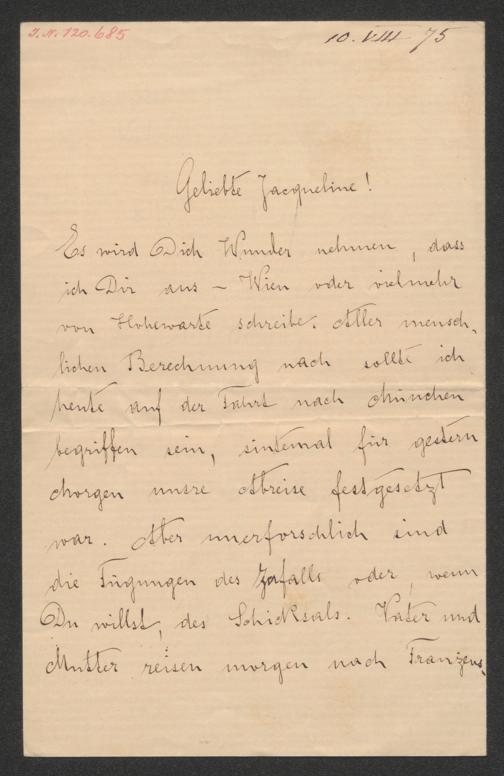 J.N. 120.685
10. VIII 75
Geliebte Jacqueline!
Es wird Dich Wunder nehmen, dass
ich Dir aus – Wien oder vielmehr
von Hohewarte schreibe. Aller mensch-
lichen Berechnung nach sollte ich
heute auf der Fahrt nach München
begriffen sein, sintemal für gestern
Morgen unsre Abreise festgesetzt
war. Aber unerforschlich sind
die Fügungen des Zufalls oder, wenn
Du willst, des Schicksals. Vater und
Mutter reisen morgen nach Franzens-